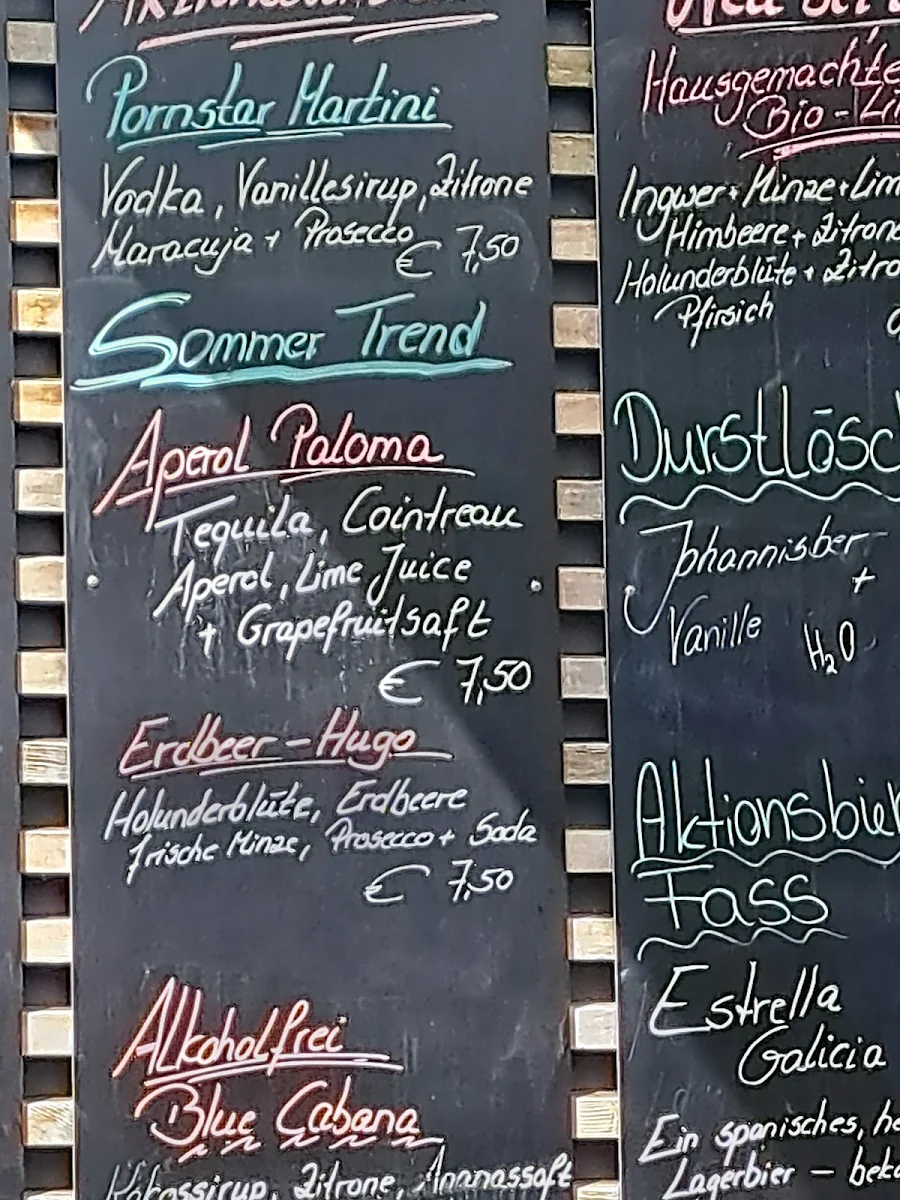 Pornstar Martini
Vodka, Vanillesirup, Zitrone
Maracuja + Prosecco
€ 7,50
Sommer Trend
Aperol Paloma
Tequila, Cointreau
Aperol, Lime Juice
+ Grapefruitsaft
€ 7,50
Erdbeer-Hugo
Holunderblüte, Erdbeere
frische Minze, Prosecco + Soda
€ 7,50
Alkoholfrei
Blue Cabana
Kokossirup, Zitrone, Ananassaft
Hausgemachte
Bio - Li
Ingwer + Minze + Lim
Himbeere + Zitrone
Holunderblüte + Zitro
Pfirsich
Durstlösc
Johannisber
+
Vanille H₂O
Aktionsbier
Fass
Estrella
Galicia
Ein spanisches, he
Lagerbier – beka